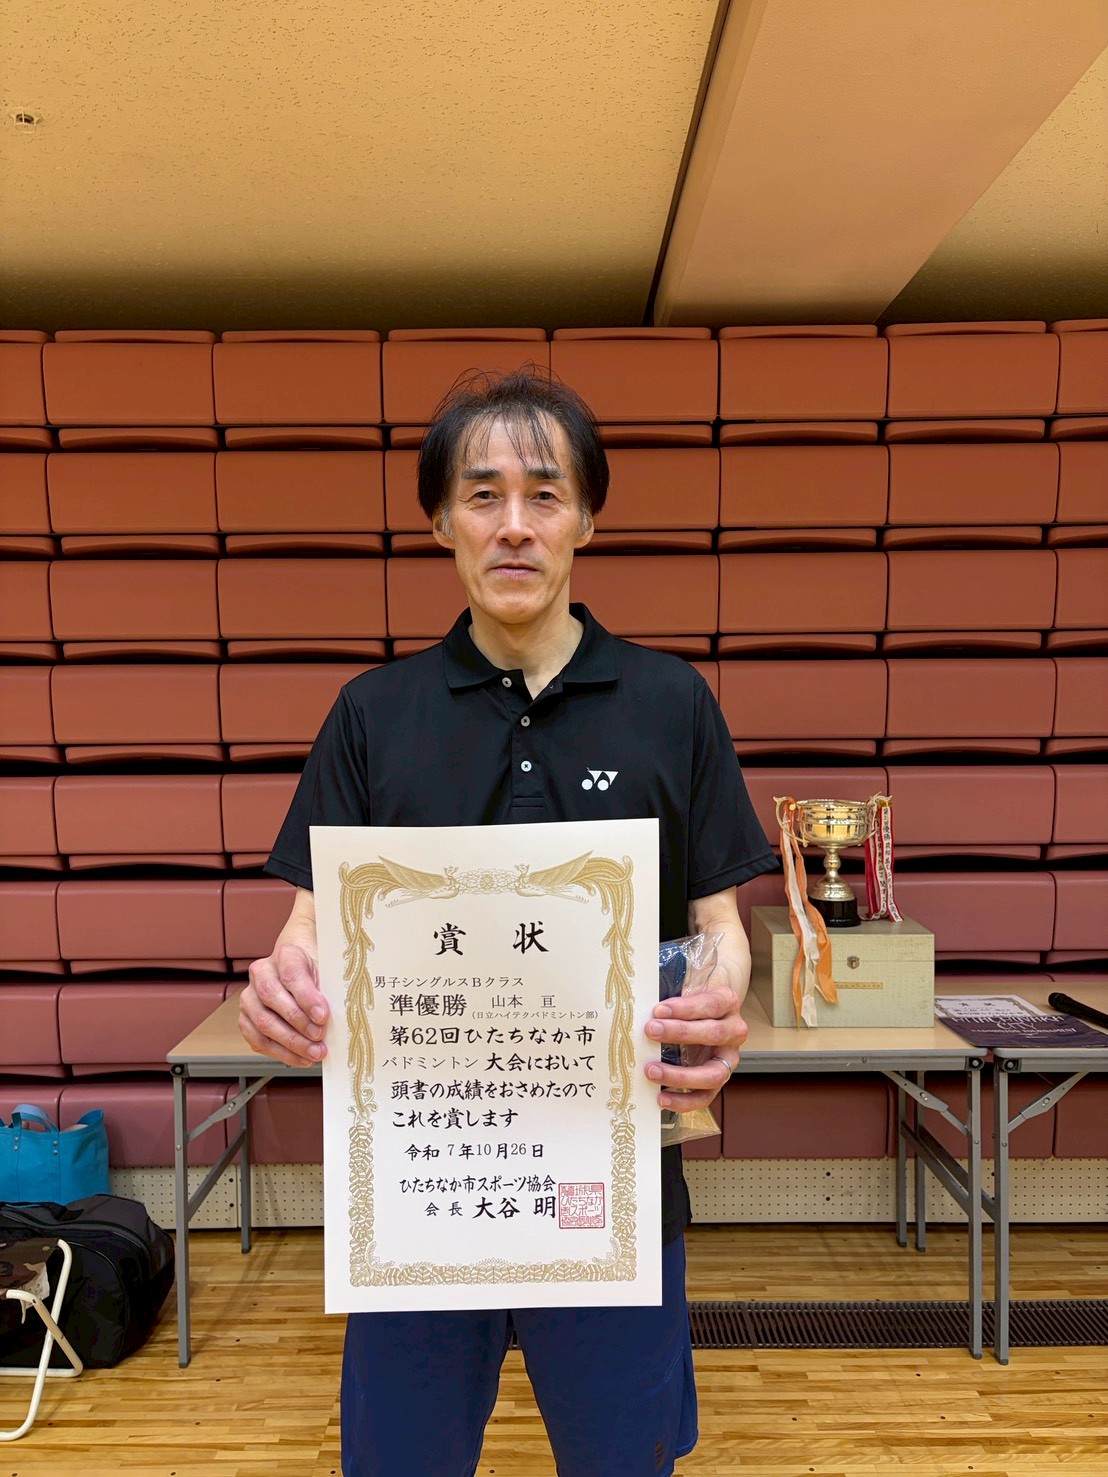 賞状
男子シングルスBクラス
準優勝 山本 亘
(日立ハイテクバドミントン部)
第62回ひたちなか市
バドミントン 大会において
頭書の成績をおさめたので
これを賞します
令和 7年10月26日
ひたちなか市スポーツ協会
会長 大谷 明